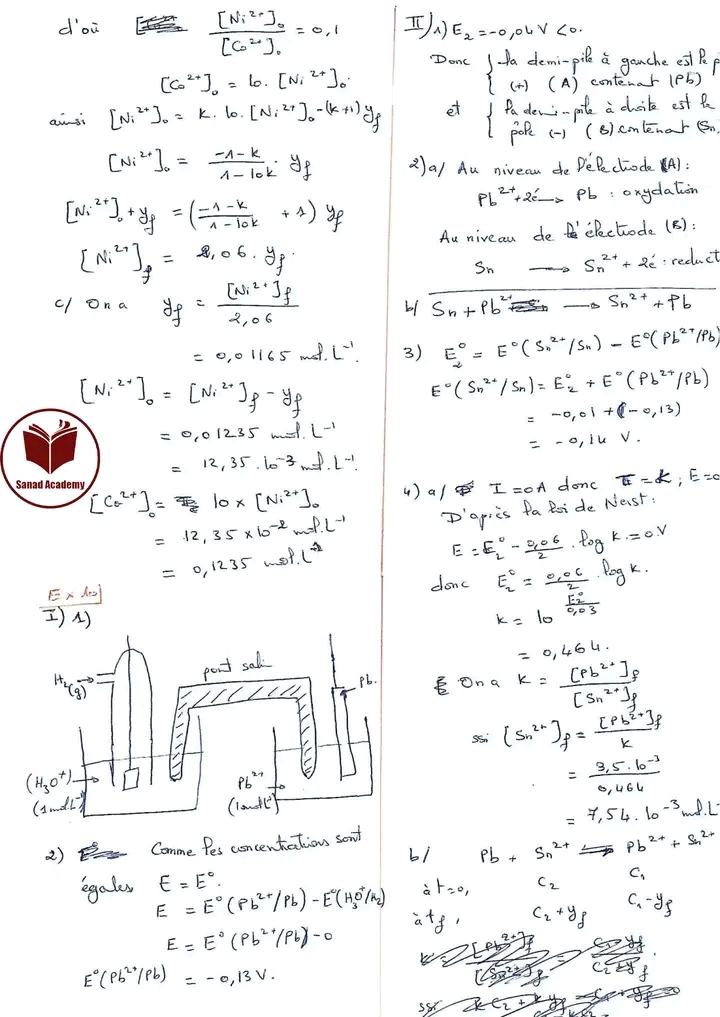 d'où [Ni²⁺]₀ / [Co²⁺]₀ = 0,1
[Co²⁺]₀ = 10. [Ni²⁺]₀.
ainsi [Ni²⁺]₀ = k. 10. [Ni²⁺]₀ - (k+1) yf
[Ni²⁺]₀ = (-1-k / 1-10k) . yf
[Ni²⁺]₀ + yf = (-1-k / 1-10k + 1) yf
[Ni²⁺]f = 2,06. yf.
c/ On a yf = [Ni²⁺]f / 2,06
= 0,01165 mol.L⁻¹.
[Ni²⁺]₀ = [Ni²⁺]f - yf
= 0,01235 mol.L⁻¹
= 12,35.10⁻³ mol.L⁻¹.
[Co²⁺]₀ = 10 x [Ni²⁺]₀
= 12,35 x 10⁻² mol.L⁻¹
= 0,1235 mol.L⁻¹
Sanad Academy
I) 1)
H₂(g)
pont salin
Pb
(H₃O⁺)
(1 mol.L⁻¹)
Pb²⁺
(1 mol.L⁻¹)
2) Comme les concentrations sont
égales E = E°.
E = E°(Pb²⁺/Pb) - E°(H₃O⁺/H₂)
E = E°(Pb²⁺/Pb) - 0
E°(Pb²⁺/Pb) = -0,13 V.
II) 1) E₂ = -0,04 V < 0.
Donc { la demi-pile à gauche est le p
(+) (A) contenant (Pb)
et { la demi-pile à droite est le
pôle (-) (B) contenant (Sn
2) a/ Au niveau de l'électrode (A) :
Pb²⁺ + 2é → Pb : oxydation
Au niveau de l'électrode (B) :
Sn → Sn²⁺ + 2é : reduct
b/ Sn + Pb²⁺ → Sn²⁺ + Pb
3) E°₂ = E°(Sn²⁺/Sn) - E°(Pb²⁺/Pb)
E°(Sn²⁺/Sn) = E°₂ + E°(Pb²⁺/Pb)
= -0,01 + (-0,13)
= -0,14 V.
4) a/ I = 0A donc π = K, E = 0
D'après la loi de Nerst :
E = E°₂ - 0,06/2 . log K = 0 V
donc E°₂ = 0,06/2 . log K.
K = 10^(E°₂/0,03)
= 0,464.
On a K = [Pb²⁺]f / [Sn²⁺]f
ssi [Sn²⁺]f = [Pb²⁺]f / K
= 3,5.10⁻³ / 0,464
= 7,54.10⁻³ mol.L⁻
b/ Pb + Sn²⁺ ⇌ Pb²⁺ + Sn²⁺
à t=0, C₂ C₁
à tf, C₂+yf C₁-yf